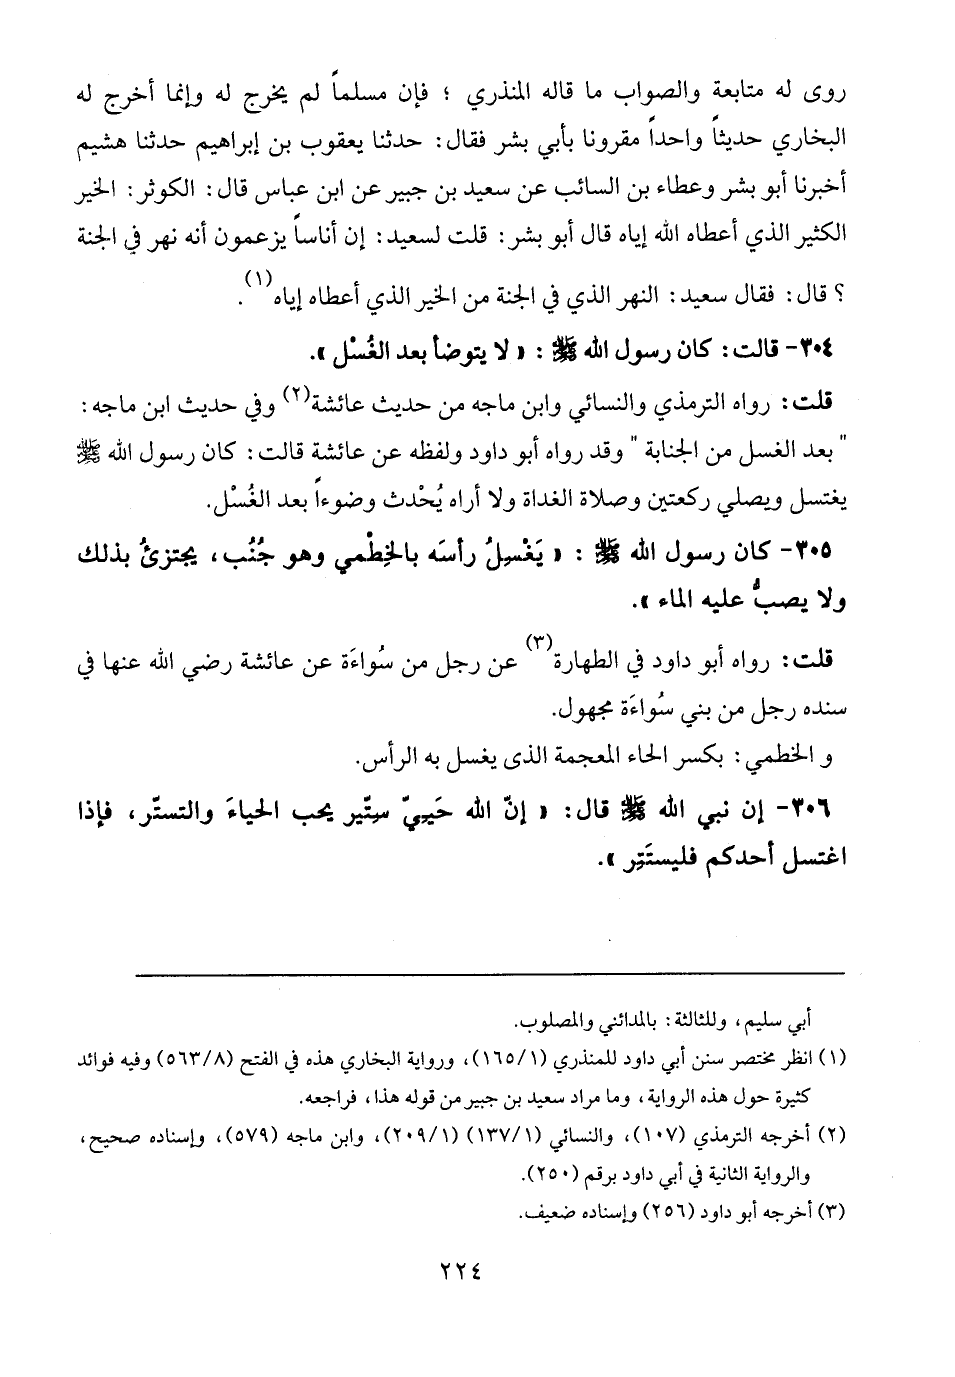 روى له متابعة والصواب ما قاله المنذري ؛ فإن مسلماً لم يخرج له وإنما أخرج له
البخاري حديثاً واحداً مقرونا بأبي بشر فقال: حدثنا يعقوب بن إبراهيم حدثنا هشيم
أخبرنا أبو بشر وعطاء بن السائب عن سعيد بن جبير عن ابن عباس قال: الكوثر: الخير
الكثير الذي أعطاه الله إياه قال أبو بشر: قلت لسعيد: إن أناساً يزعمون أنه نهر في الجنة
؟ قال: فقال سعيد: النهر الذي في الجنة من الخير الذي أعطاه إياه(١).
٣٠٤- قالت: كان رسول الله ﷺ : « لا يتوضأ بعد الغُسْل ».
قلت: رواه الترمذي والنسائي وابن ماجه من حديث عائشة(٢) وفي حديث ابن ماجه:
"بعد الغسل من الجنابة" وقد رواه أبو داود ولفظه عن عائشة قالت: كان رسول الله ﷺ
يغتسل ويصلي ركعتين وصلاة الغداة ولا أراه يُحْدث وضوءاً بعد الغُسْل.
٣٠٥- كان رسول الله ﷺ : « يَغْسِلُ رأسَه بالخِطْمي وهو جُنُب، يجتزئُ بذلك
ولا يصبُّ عليه الماء ».
قلت: رواه أبو داود في الطهارة(٣) عن رجل من سُواءَة عن عائشة رضي الله عنها في
سنده رجل من بني سُواءَة مجهول.
و الخطمي: بكسر الخاء المعجمة الذى يغسل به الرأس.
٣٠٦- إن نبي الله ﷺ قال: « إنّ الله حَييّ سِتّير يحب الحياءَ والتستّر، فإذا
اغتسل أحدكم فليستَتِر ».
أبي سليم، وللثالثة: بالمدائني والمصلوب.
(١) انظر مختصر سنن أبي داود للمنذري (١٦٥/١)، ورواية البخاري هذه في الفتح (٥٦٣/٨) وفيه فوائد
كثيرة حول هذه الرواية، وما مراد سعيد بن جبير من قوله هذا، فراجعه.
(٢) أخرجه الترمذي (١٠٧)، والنسائي (١٣٧/١) (٢٠٩/١)، وابن ماجه (٥٧٩)، وإسناده صحيح،
والرواية الثانية في أبي داود برقم (٢٥٠).
(٣) أخرجه أبو داود (٢٥٦) وإسناده ضعيف.
٢٢٤